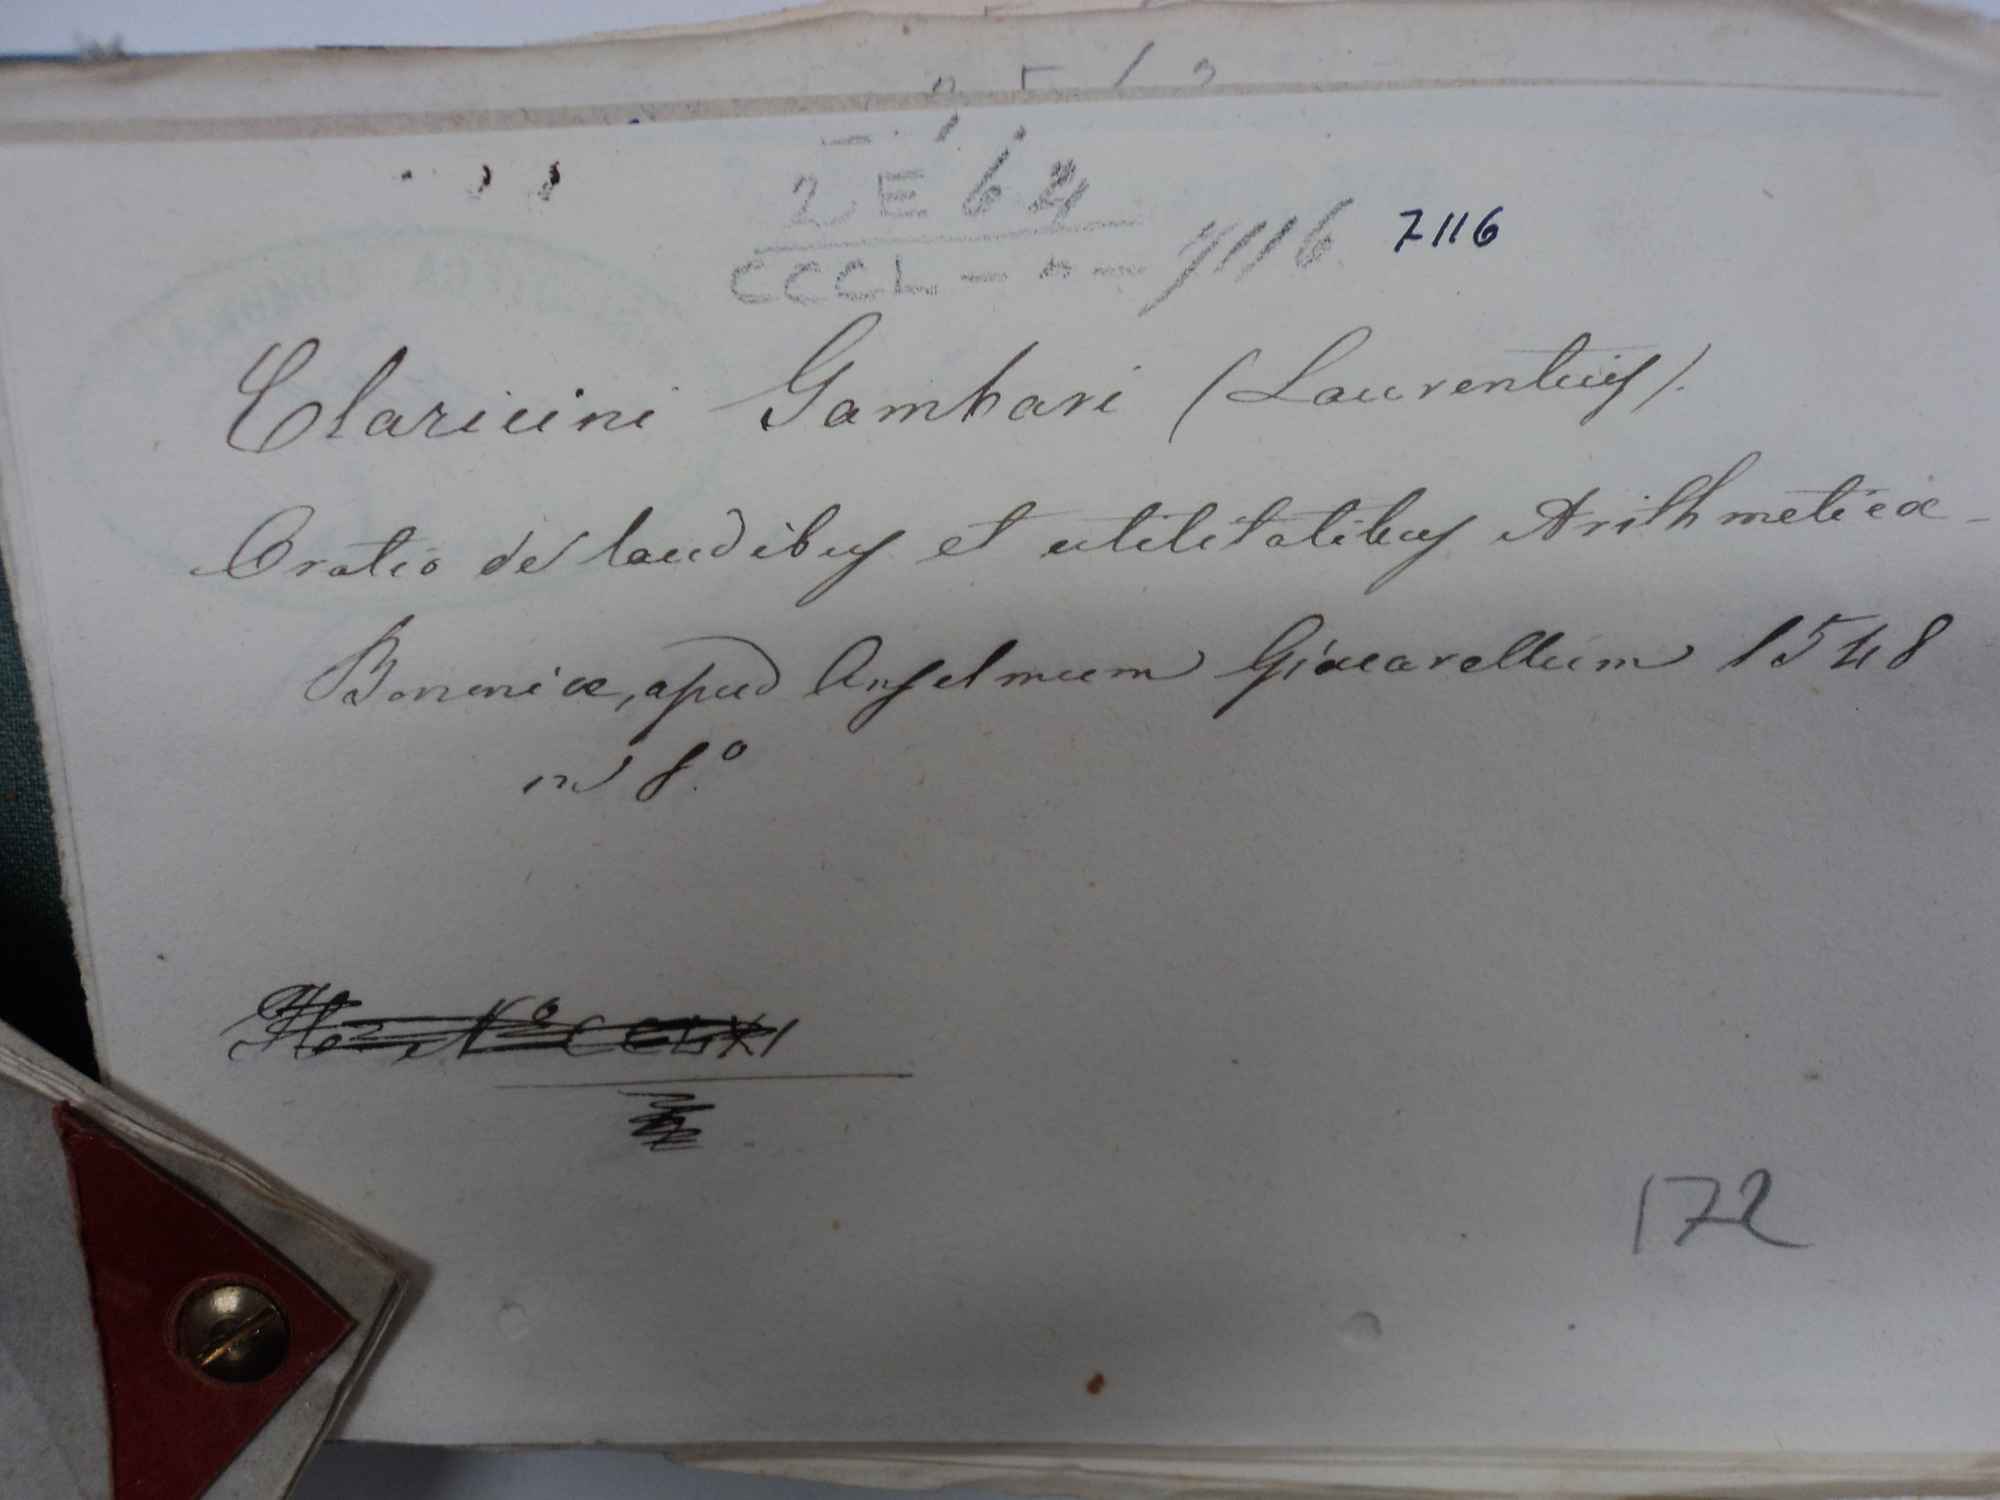 2 E 6 4
CCCL - n - 7116 7116
Claricini Gambari (Laurentius).
Oratio de laudibus et utilitatibus Arithmeticæ -
Bononiæ, apud Anselmum Giacarellum 1548
in 8.°
N° CCLXI
172